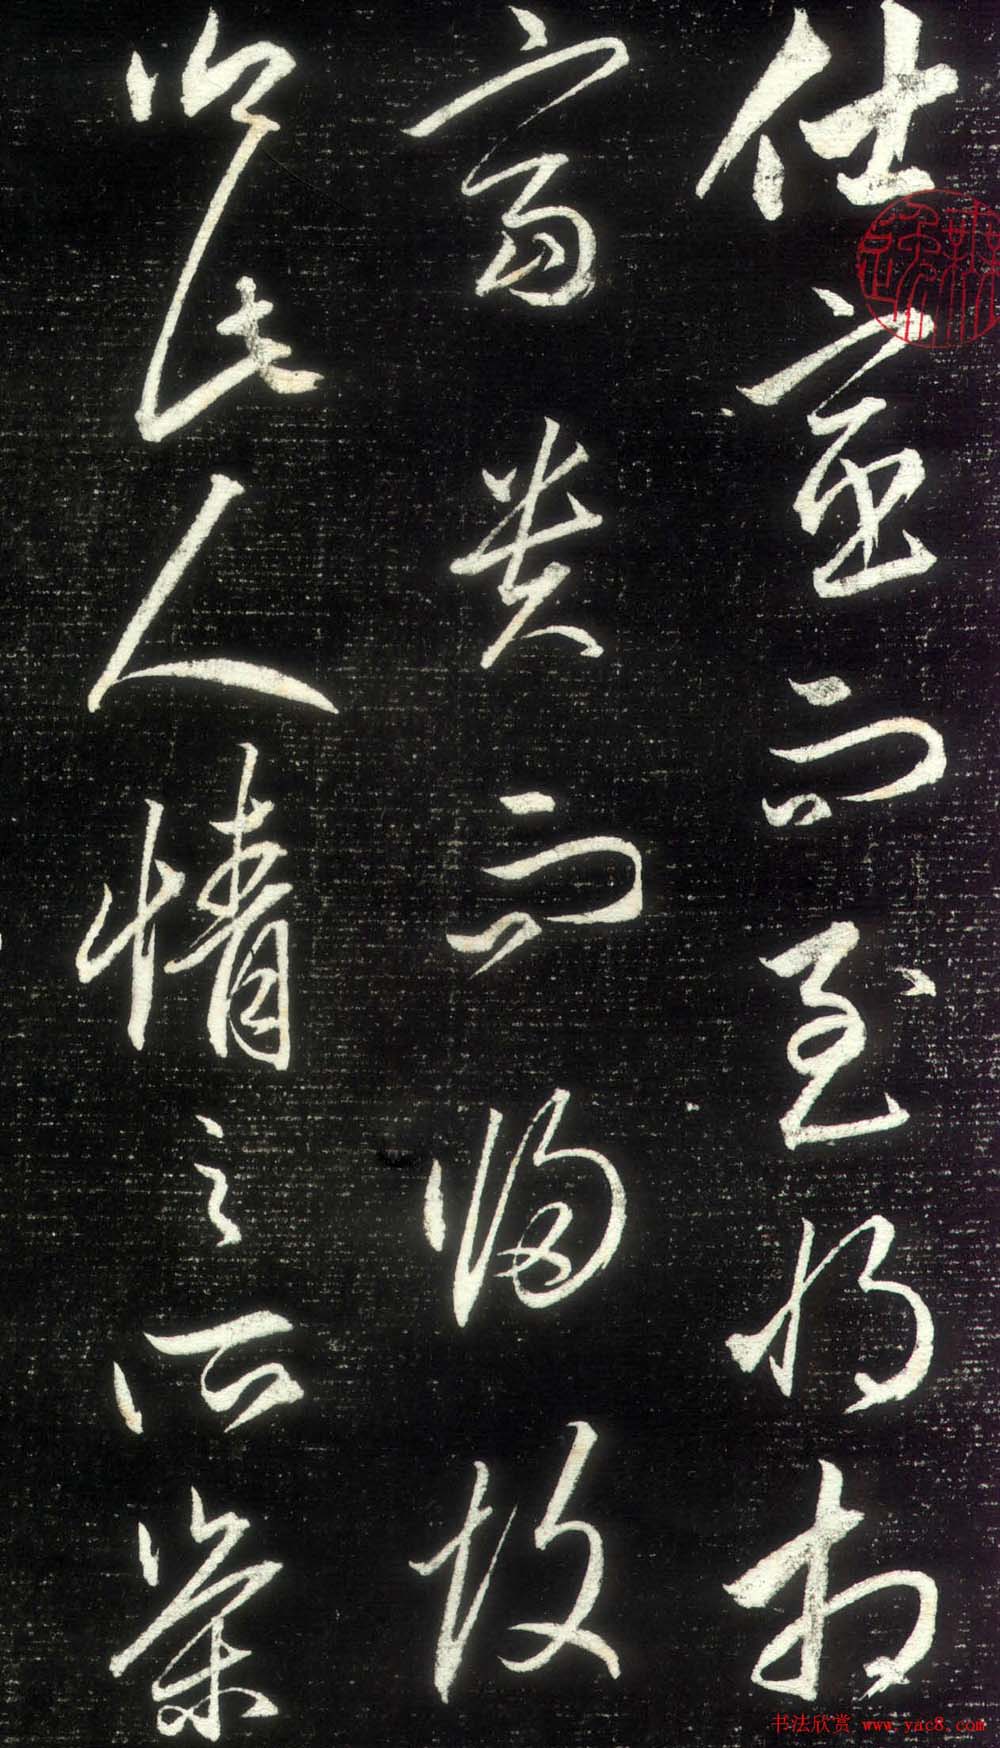 仕宦而至将相
富贵而归故
乡此人情之所荣
书法欣赏 www.yac8.com